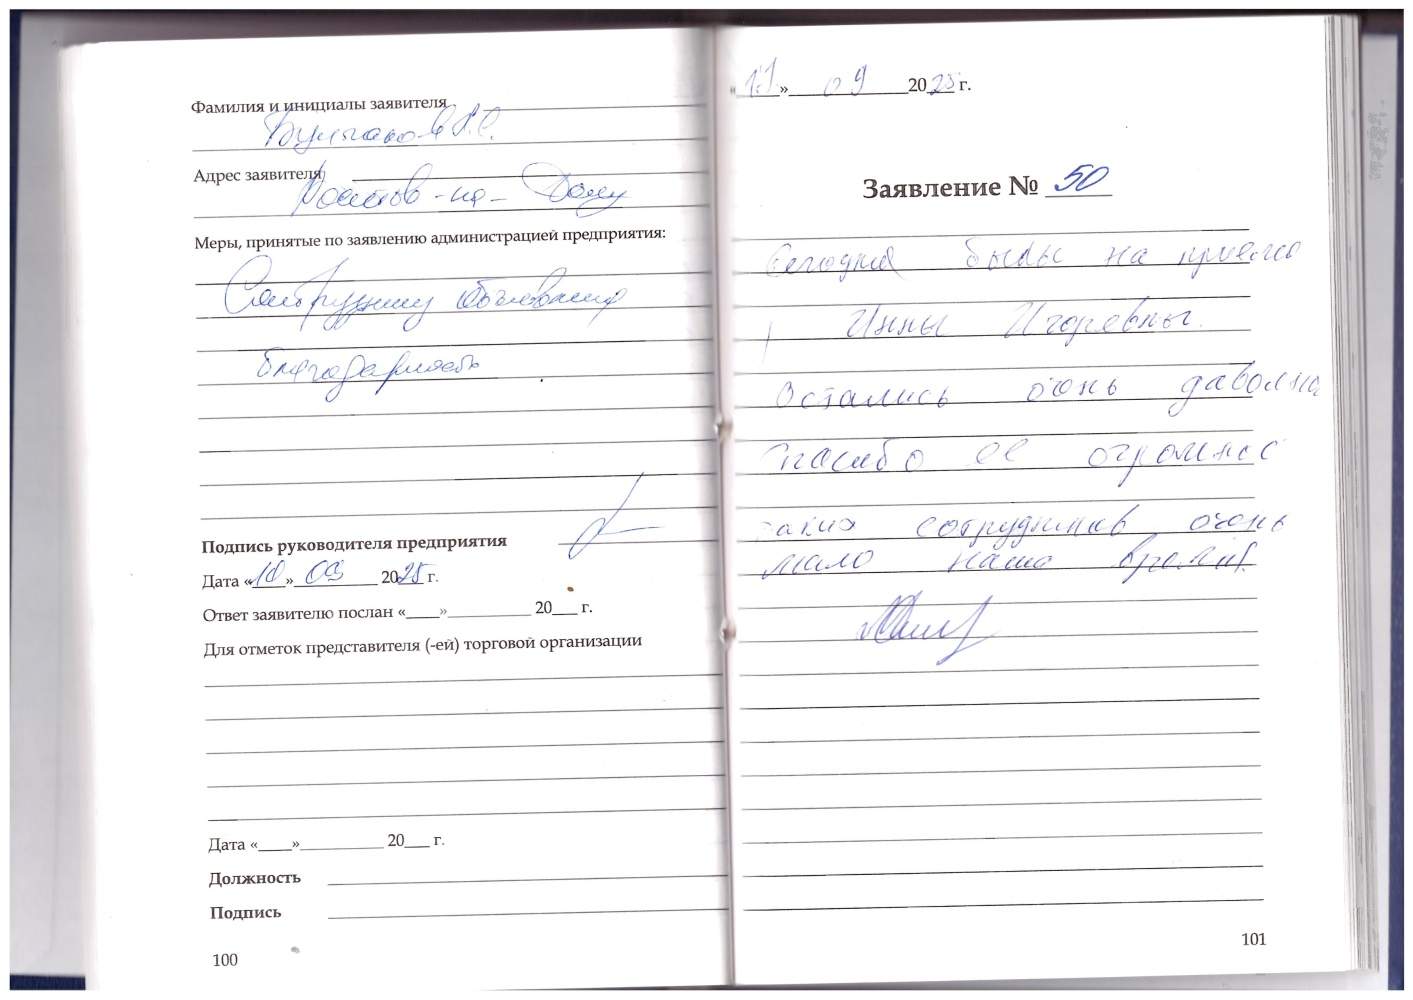 Фамилия и инициалы заявителя
Булгаков А.С.
Адрес заявителя
Ростов-на-Дону
Меры, принятые по заявлению администрацией предприятия:
Сотруднику объявлена
благодарность
Подпись руководителя предприятия
Дата «10» 09 2025 г.
Ответ заявителю послан «____»__________ 20___ г.
Для отметок представителя (-ей) торговой организации
Дата «____»__________ 20___ г.
Должность
Подпись
100
«11» 09 2025 г.
Заявление № 50
Сегодня были на приеме
Инны Игоревны.
Остались очень даволна
Спасибо ее огромное
таких сотрудников очень
мало наше время.
101